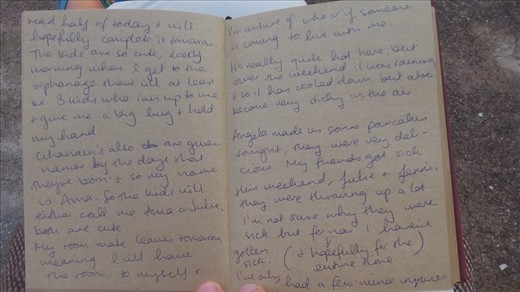 read half of today & will
hopefully complete it tomorrow.
The kids are so cute, every
morning when I get to the
orphanage there will at least
be 3 kids who run up to me
& give me a big hug & hold
my hand.
Ghanain's also do are given
names by the days that
they're born & so my name
is Ama. So the kids will
either call me Ama or Julie,
both are cute.
My room mate leaves tomorrow,
meaning I will have
the room to myself &
I'm unsure of who or if someone
is coming to live with me.
It's really quite hot here, but
over the weekend it was raining
& so it has cooled down but also
become very sticky in the air.
Angela made us some pancakes
tonight, they were very deli-
cious. My friends got sick
this weekend, Julie & Jenn.
they were throwing up a lot
I'm not sure why they were
sick but for now I haven't
gotten
sick. (& hopefully for the
entire time)
I've only had a few minor injuries